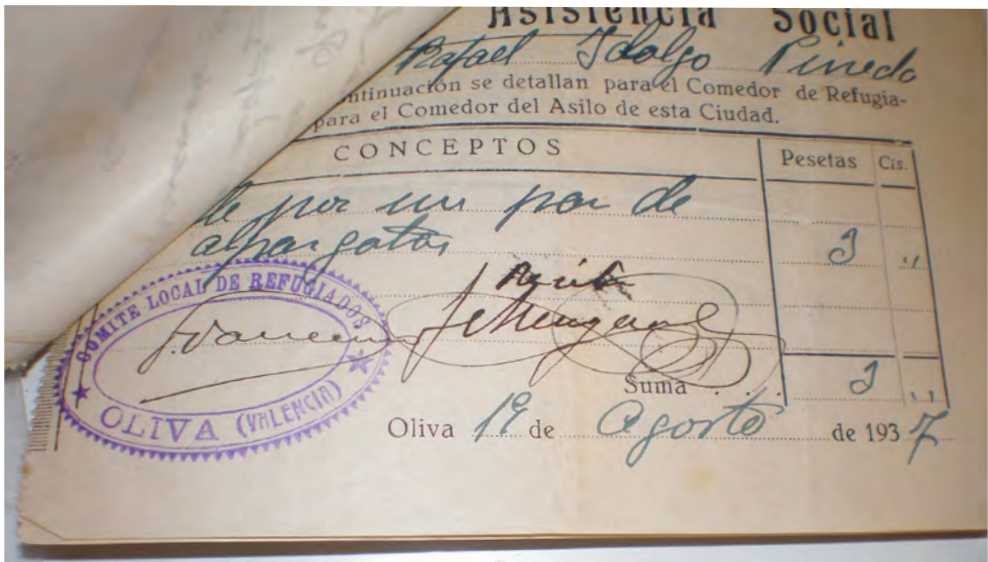 Asistencia Social
Rafael Idalgo Pinedo
ontinuación se detallan para el Comedor de Refugia-
para el Comedor del Asilo de esta Ciudad.
CONCEPTOS Pesetas Cts.
por un par de
alpargatas 3 "
COMITE LOCAL DE REFUGIADOS
OLIVA (VALENCIA)
Suma . . . . 3 "
Oliva 19 de Agosto de 1937